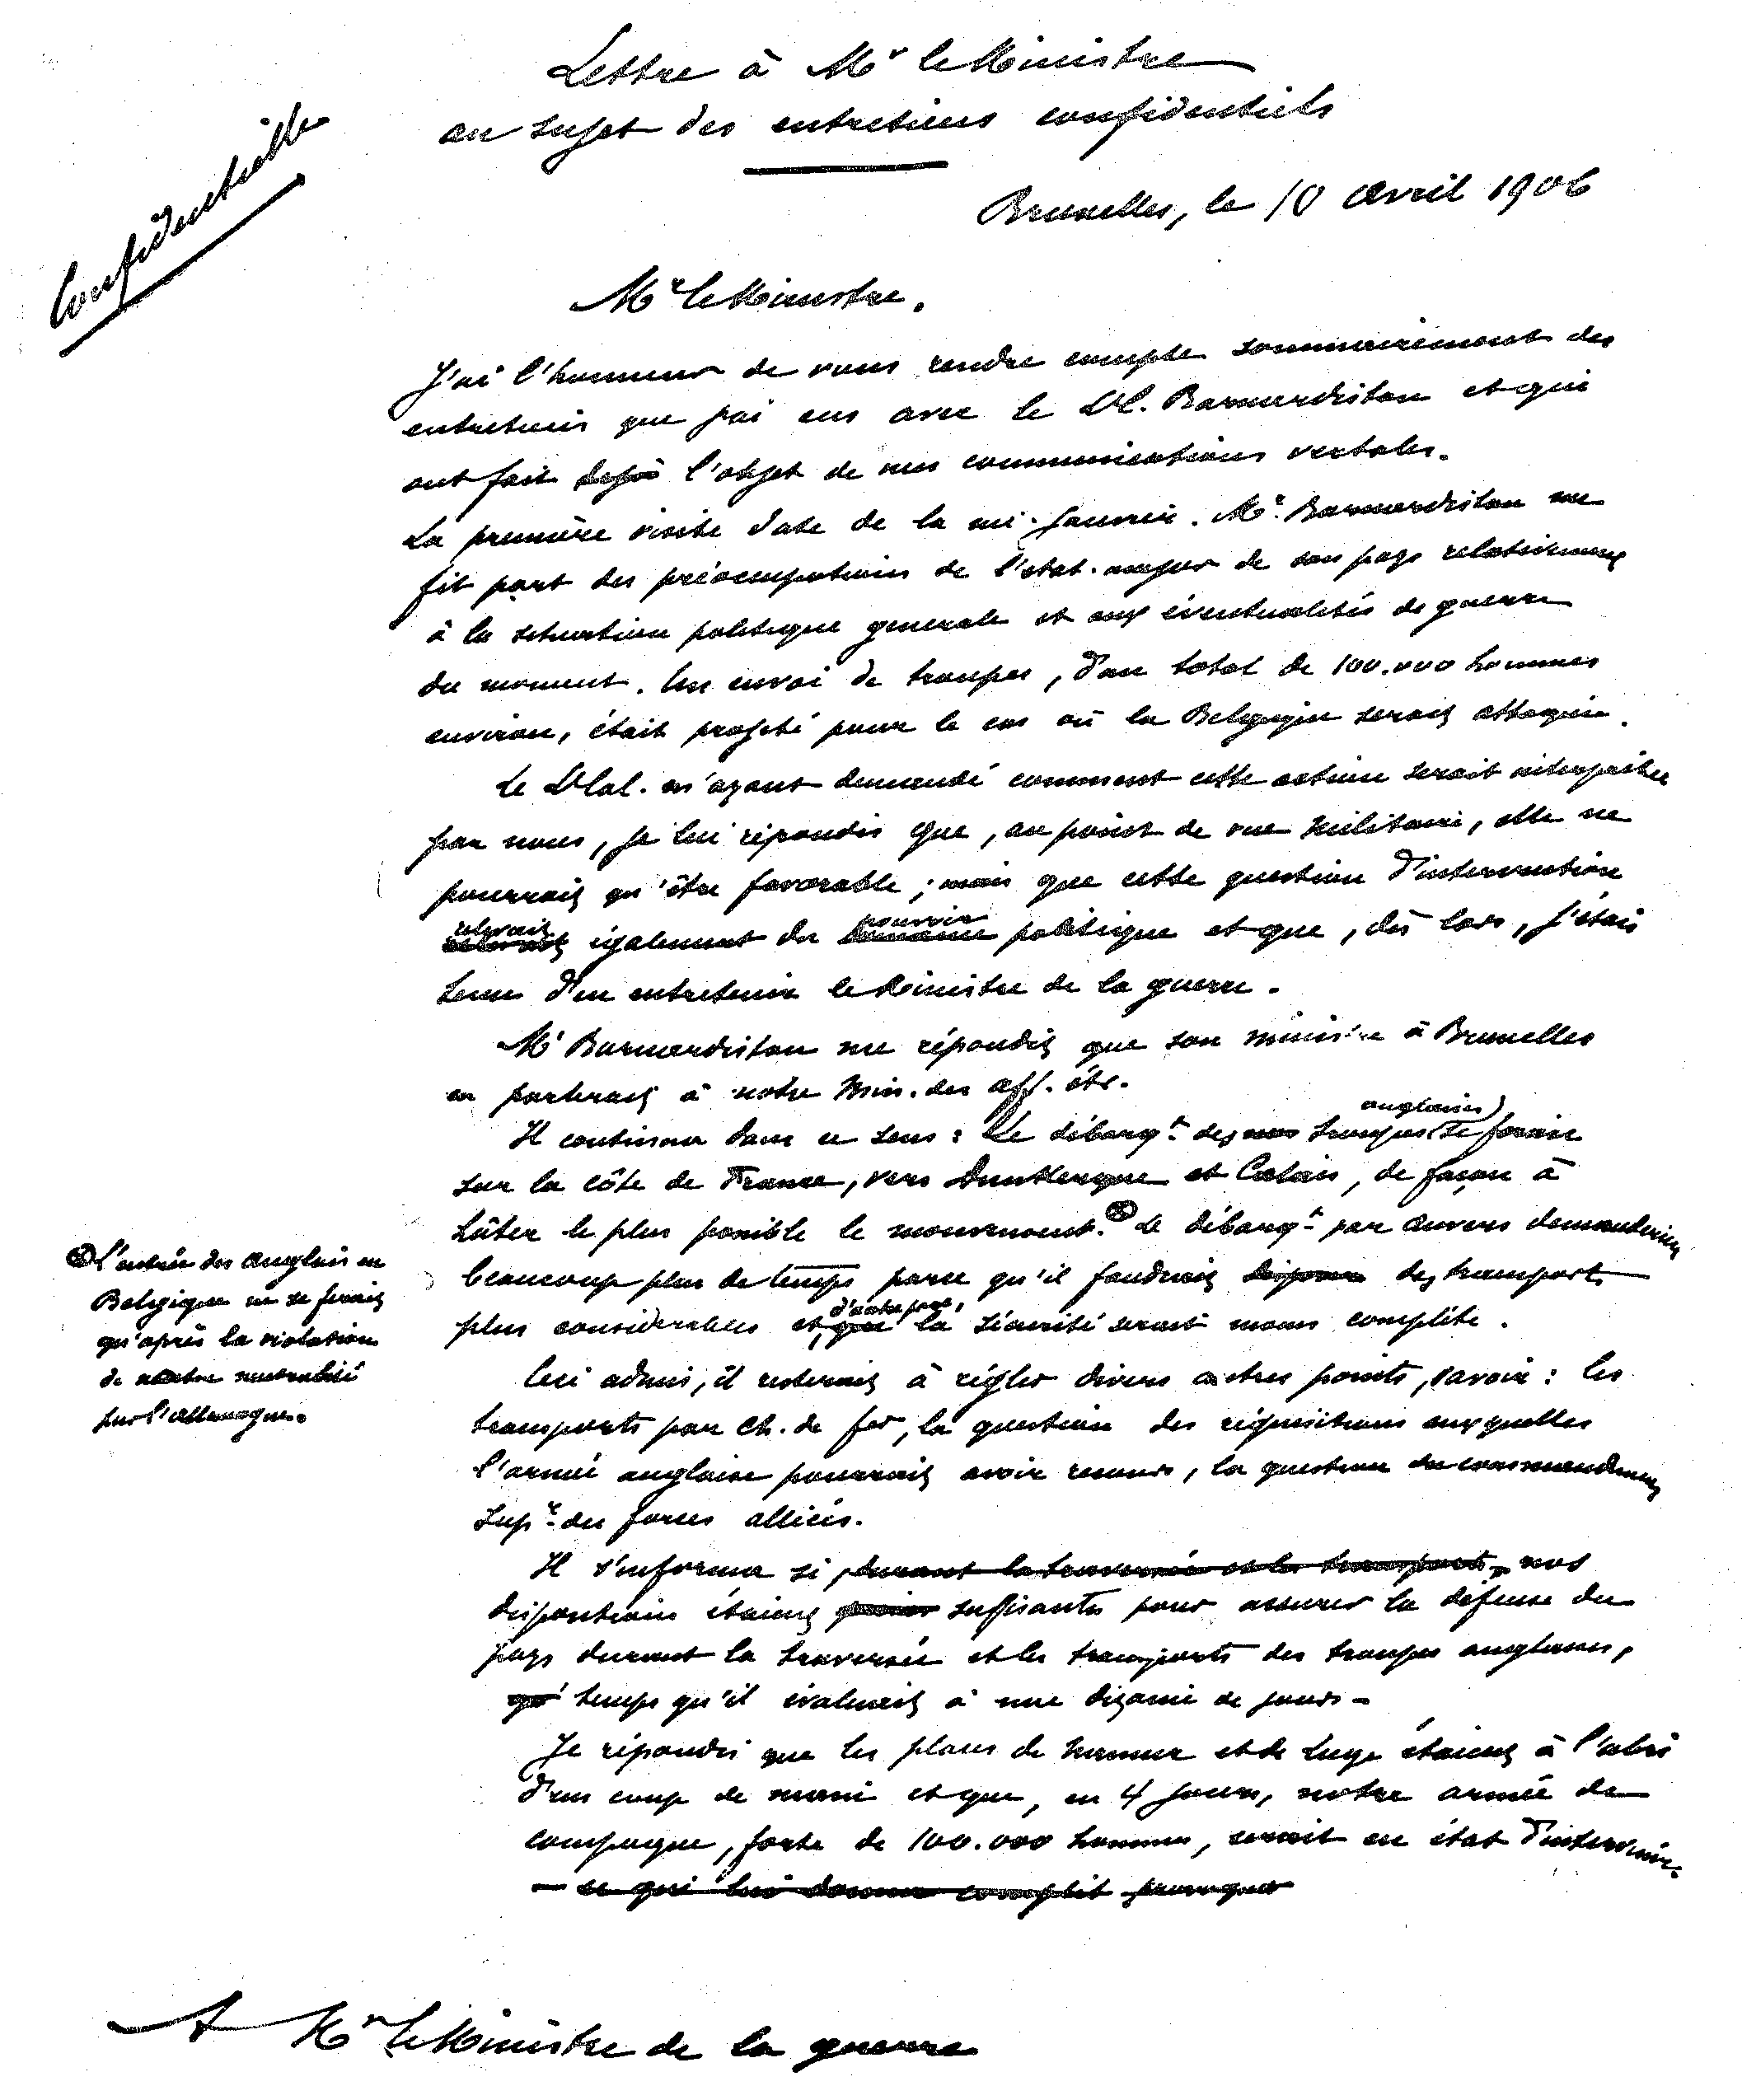 Confidentielle
Lettre à Mr le Ministre
au sujet des entretiens confidentiels
Bruxelles, le 10 avril 1906
Mr le Ministre.
J'ai l'honneur de vous rendre compte sommairement des
entretiens que j'ai eus avec le Lt C. Barnardiston et qui
ont fait déjà l'objet de mes communications verbales.
La première visite date de la mi-janvier. Mr. Barnardiston me
fit part des préoccupations de l'état-major de son pays relativement
à la situation politique generale et aux éventualités de guerre
du moment. Un envoi de troupes, d'un total de 100.000 hommes
environ, était projeté pour le cas où la Belgique serait attaquée.
Le Lt Col. m'ayant demandé comment cette action serait interprétée
par nous, je lui répondis que, au point de vue militaire, elle ne
pourrait qu'être favorable; mais que cette question d'intervention
relevait également du pouvoir politique et que, dès lors, j'étais
tenu d'en entretenir le Ministre de la guerre.
Mr Barnardiston me répondit que son ministre à Bruxelles
en parlerait à notre Min. des aff. étr.
Il continua dans ce sens: Le débarqt des troupes anglaises se ferait
sur la côte de France, vers Dunkerque et Calais, de façon à
hâter le plus possible le mouvement. Le débarqt par Anvers demanderait
beaucoup plus de temps parce qu'il faudrait des transports
plus considerables et, d'autre part, la sécurité serait moins complète.
L'entrée des Anglais en
Belgique ne se ferait
qu'après la violation
de notre neutralité
par l'Allemagne.
Ceci admis, il resterait à régler divers autres points, savoir: les
transports par ch. de fer, la question des réquisitions auxquelles
l'armée anglaise pourrait avoir recours, la question du commandement
supr des forces alliées.
Il s'informa si, durant la traversée et les transports, nos
dispositions étaient suffisantes pour assurer la défense du
pays durant la traversée et les transports des troupes anglaises,
temps qu'il évaluait à une dizaine de jours.
Je répondis que les places de Namur et de Liège étaient à l'abri
d'un coup de main et que, en 4 jours, notre armée de
campagne, forte de 100.000 hommes, serait en état d'intervenir.
ce qui lui donna complet
A Mr le Ministre de la guerre